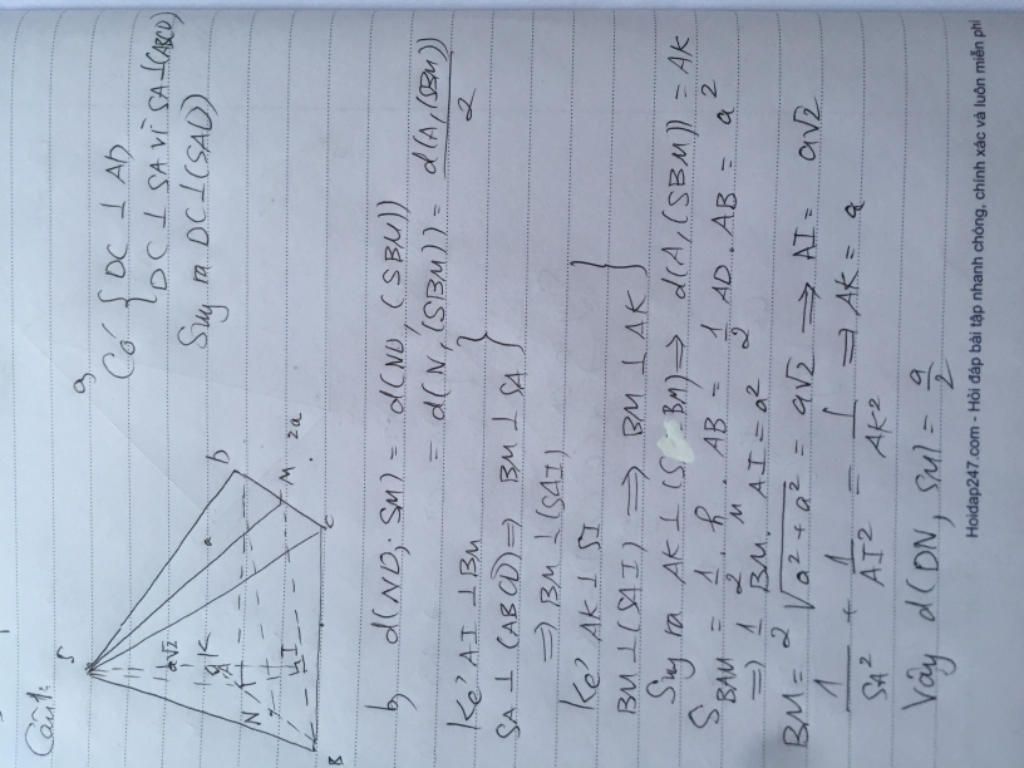 Câu 1:
S
a√2
K
A
N
I
B
C
M
D
2a
a,
Có { DC ⊥ AD
DC ⊥ SA vì SA ⊥ (ABCD)
Suy ra DC ⊥ (SAD)
b, d(ND; SM) = d(ND, (SBM))
= d(N, (SBM)) = d(A, (SBM)) / 2
Kẻ AI ⊥ BM }
SA ⊥ (ABCD) => BM ⊥ SA
=> BM ⊥ (SAI)
Kẻ AK ⊥ SI }
BM ⊥ (SAI) => BM ⊥ AK
Suy ra AK ⊥ (S BM) => d(A, (SBM)) = AK
S BMA = 1/2 . h . AB = 1/2 AD . AB = a²
=> 1/2 BM . AI = a²
BM = √a² + a² = a√2 => AI = a√2
1/SA² + 1/AI² = 1/AK² => AK = a
Vậy d(DN, SM) = a/2
Hoidap247.com - Hỏi đáp bài tập nhanh chóng, chính xác và luôn miễn phí